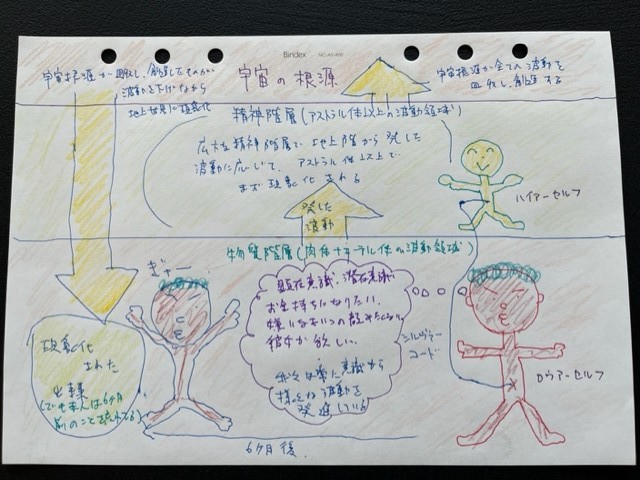 Bindex
宇宙根源が吸収し、創造したものが
波動を下げながら
地上世界に現象化
宇宙の根源
宇宙根源が全ての波動を
吸収し、創造する
精神階層(アストラル体以上の波動領域)
広大な精神階層で、地上階から発した
波動に応じて、アストラル体以上で
まず現象化される
ハイアーセルフ
発した
波動
物質階層(肉体+エーテル体の波動領域)
ぎゃー
顕在意識、潜在意識
お金持ちになりたい、
嫌いなあいつの
彼女が欲しい、
我々は常に意識から
様々な波動を
発進している
シルヴァー
コード
ロウアーセルフ
現象化
された
出来事
(でも本人は6ヶ月
前のことを忘れてる)
6ヶ月後